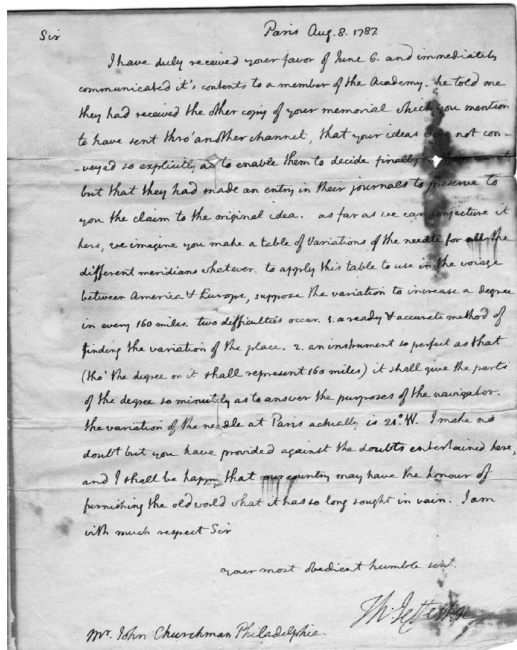 Sir Paris Aug. 8. 1787
I have duly received your favor of June 6. and immediately
communicated it's contents to a member of the Academy. he told me
they had received the other copy of your memorial which you mention
to have sent thro' another channel, that your ideas not con-
-veyed so explicitly as to enable them to decide finally
but that they had made an entry in their journals to preserve to
you the claim to the original idea. as far as we can conjecture it
here, we imagine you make a table of Variations of the needle for all the
different meridians whatever. to apply this table to use in the voiage
between America & Europe, suppose the variation to increase a degree
in every 160 miles. two difficulties occur. 1. a ready & accurate method of
finding the variation of the place. 2. an instrument so perfect as that
(tho' the degree on it shall represent 160 miles) it shall give the parts
of the degree so minutely as to answer the purposes of the navigator.
the variation of the needle at Paris actually is 21.° W. I make no
doubt but you have provided against the doubts entertained here,
and I shall be happy that our country may have the honour of
furnishing the old world what it has so long sought in vain. I am
with much respect Sir
your most obedient humble servt.
Th: Jefferson
Mr. John Churchman Philadelphia.